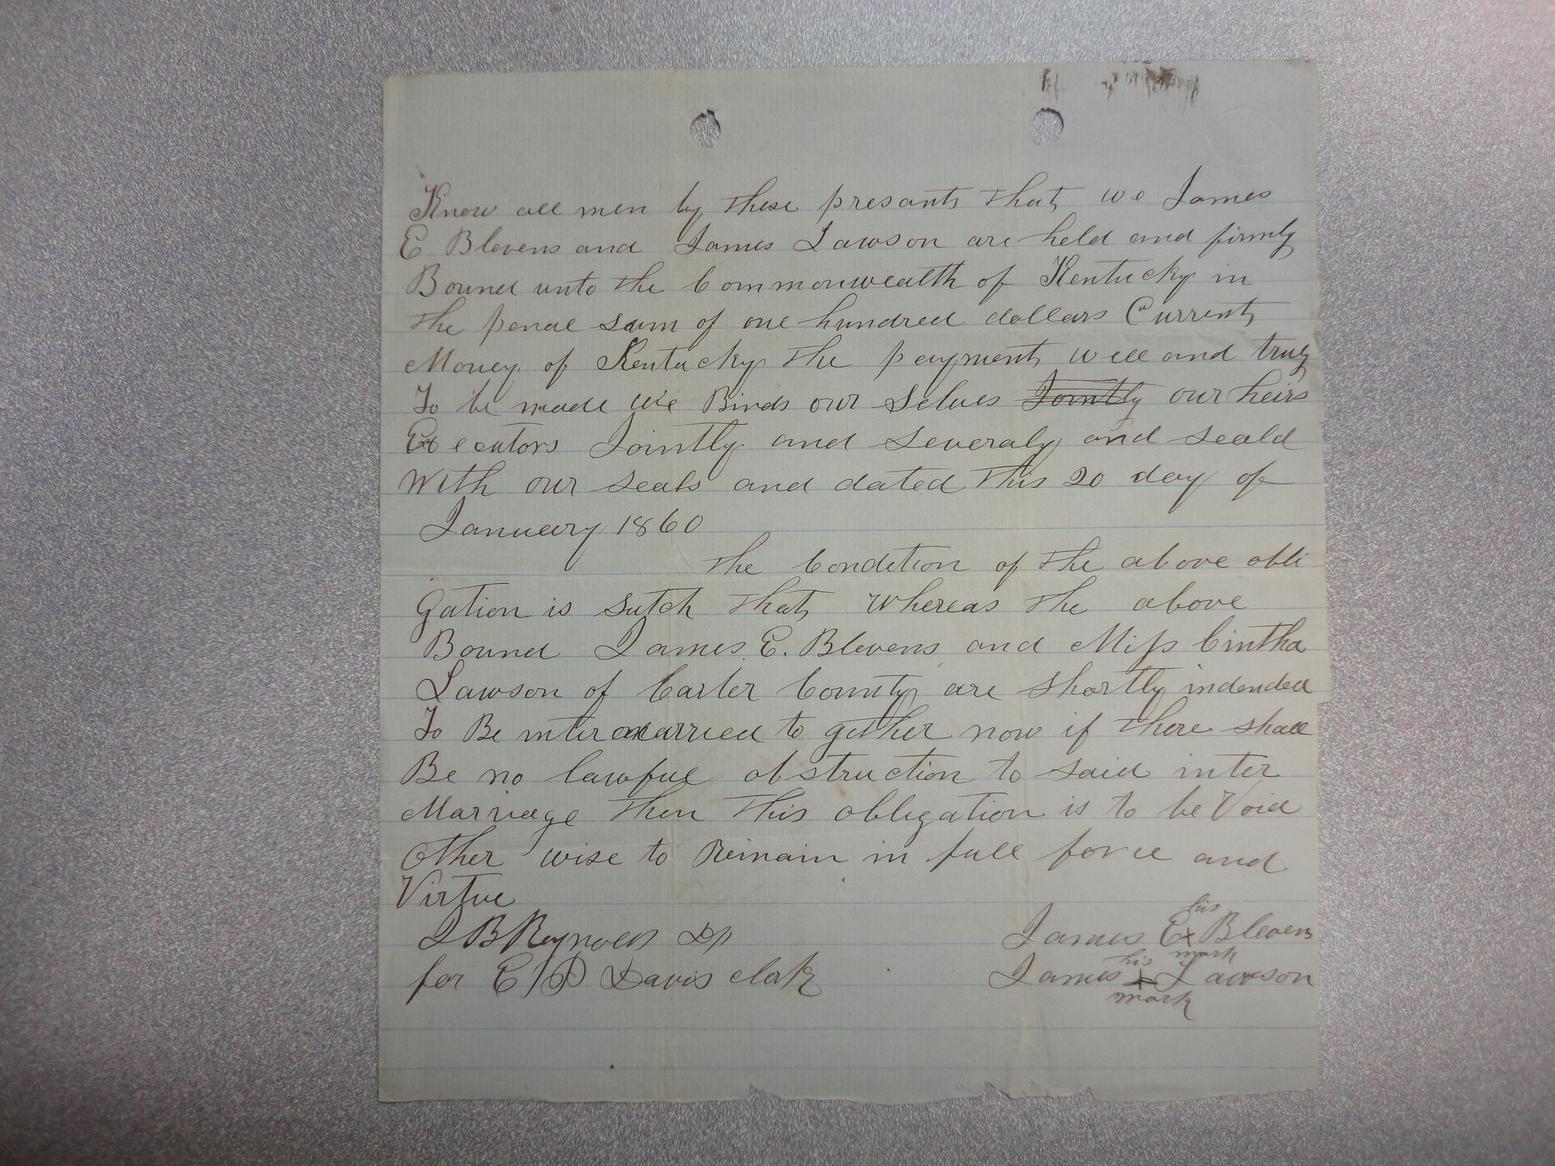 Know all men by these presants that we James
E Blevens and James Lawson are held and firmly
Bound unto the Commonwealth of Kentucky in
the penal sum of one hundred dollars Current
Money of Kentucky the payment well and truly
To be made we Binds our Selves Jointly our heirs
Executors Jointly and Severaly and seald
With our seals and dated this 20 day of
January 1860
the Condition of the above obli
gation is sutch that whereas the above
Bound James E. Blevens and Miss Cintha
Lawson of Carter County are shortly indended
To Be intermarried to gether now if there shall
Be no lawful obstruction to said inter
Marriage then this obligation is to be Void
Other wise to Remain in full force and
Virtue
J B Reynolds
for E D Davis clark
his
James E x Blevens
mark
his
James x Lawson
mark